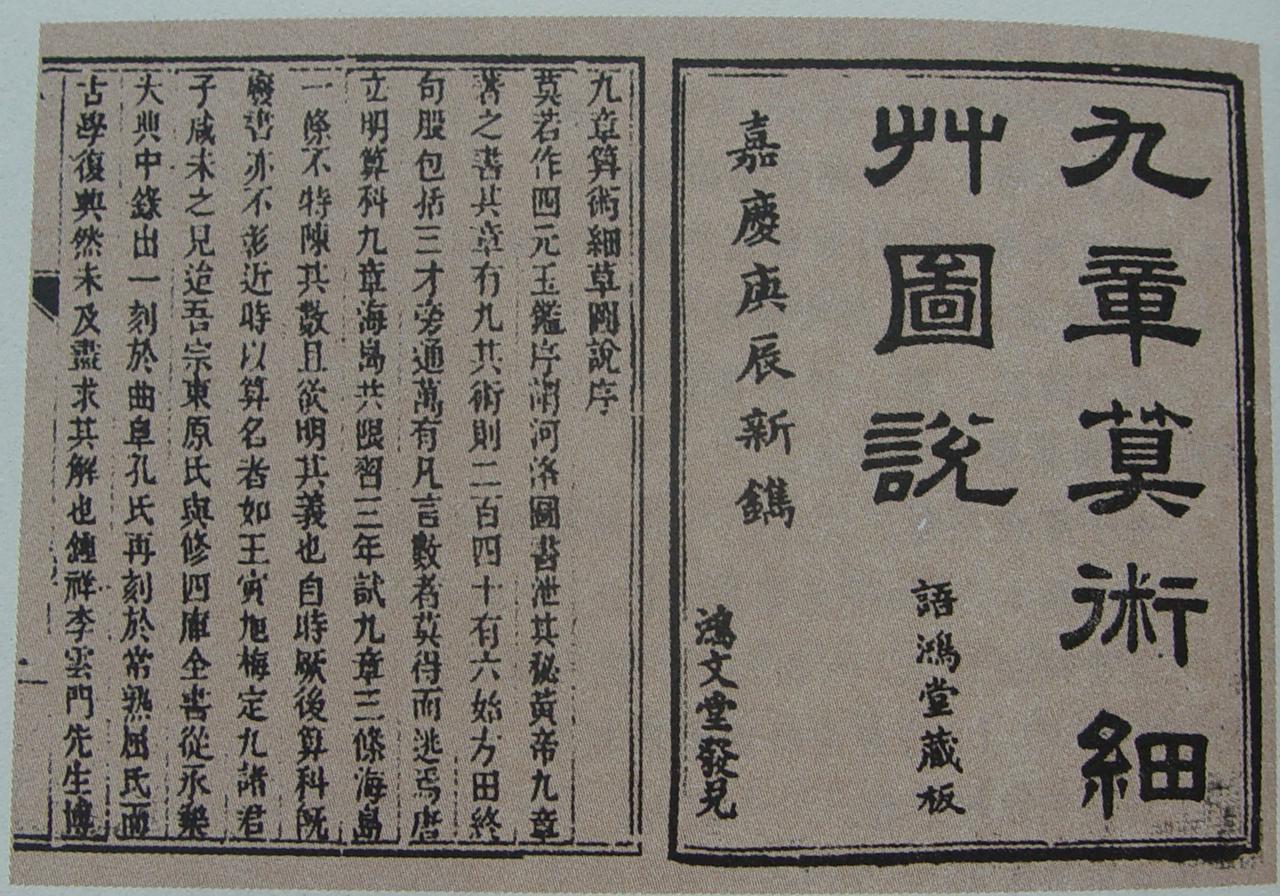 九章算術細
艸圖說
語鴻堂藏板
嘉慶庚辰新鐫
鴻文堂發兌
九章算術細草圖說序
莫若作四元玉鑑序溯河洛圖書泄其秘黃帝九章
著之書其章有九其術則二百四十有六始方田終
句股包括三才旁通萬有凡言數者莫得而逃焉唐
立明算科九章海島共限習三年試九章三條海島
一條不特陳其數且欲明其義也自時厥後算科既
廢書亦不彰近時以算名者如王寅旭梅定九諸君
子咸未之見迨吾宗東原氏與修四庫全書從永樂
大典中錄出一刻於曲阜孔氏再刻於常熟屈氏而
古學復興然未及盡求其解也鍾祥李雲門先生博